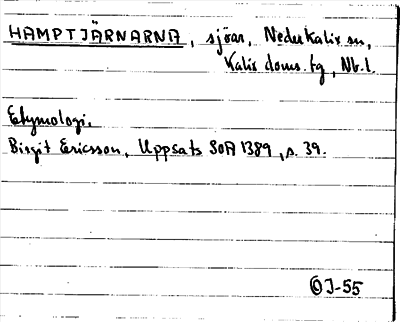 HAMPTJÄRNARNA, sjöar, Nederkalix sn,
Kalix doms. tg, Nb.l.
Etymologi.
Birgit Ericsson, Uppsats SOA 1389, s. 39.
ÖJ-55